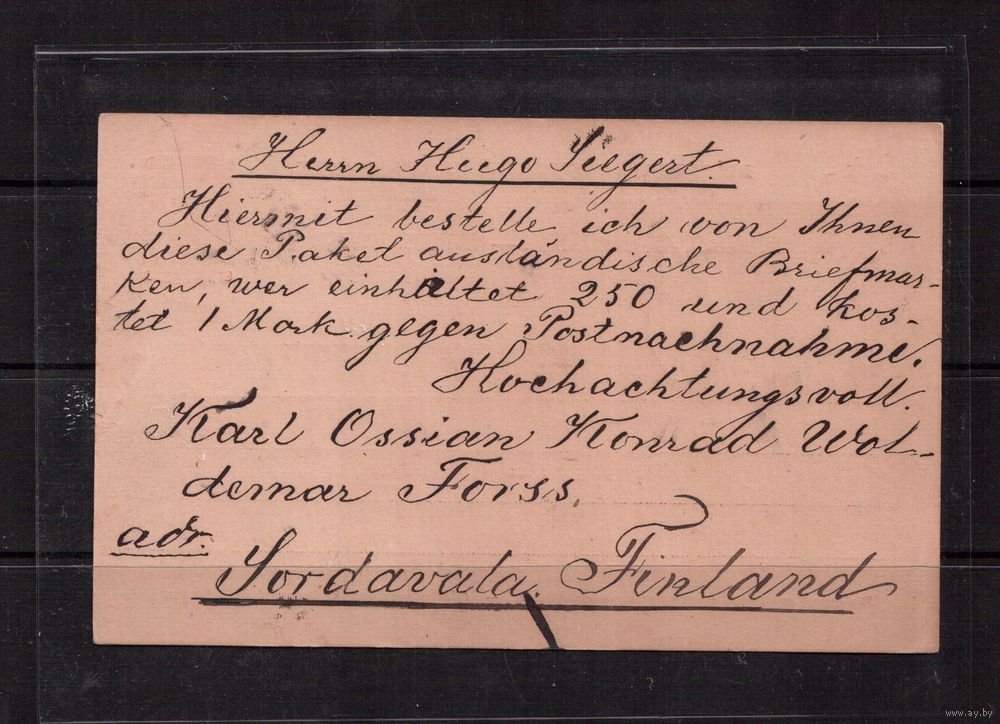 Herrn Hugo Siegert.
Hiermit bestelle ich von Ihnen
diese Paket ausländische Briefmar-
ken, wer einhältet 250 und kos-
tet 1 Mark gegen Postnachnahme.
Hochachtungsvoll.
Karl Ossian Konrad Wol-
demar Forss.
adr.
Sordavala. Finland
www.ay.by